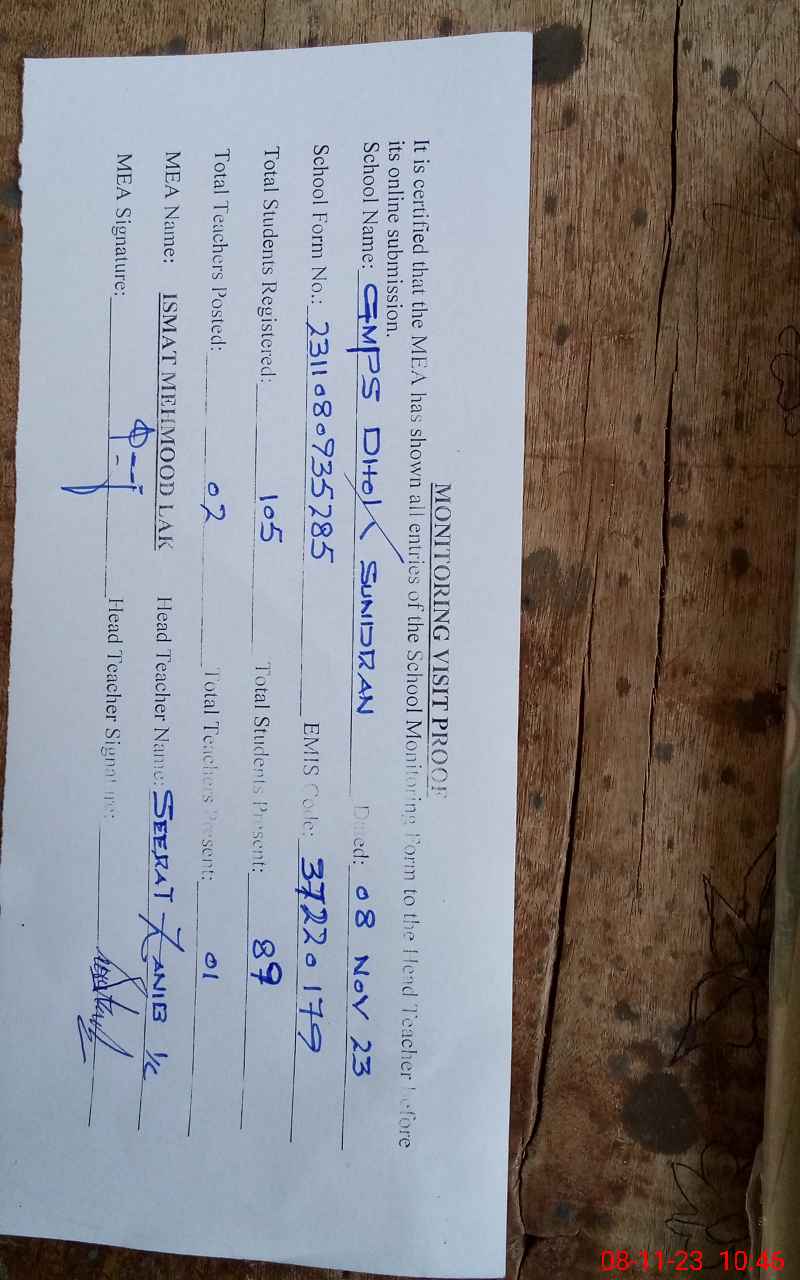 MONITORING VISIT PROOF
It is certified that the MEA has shown all entries of the School Monitoring Form to the Head Teacher before
its online submission.
School Name: GMPS DHOLA SUNIDRAN Dated: 08 NOV 23
School Form No.: 2311080935285 EMIS Code: 37220179
Total Students Registered: 105 Total Students Present: 89
Total Teachers Posted: 02 Total Teachers Present: 01
MEA Name: ISMAT MEHMOOD LAK Head Teacher Name: SEERAT ZANIB I/C
MEA Signature: Head Teacher Signature:
08-11-23 10:46